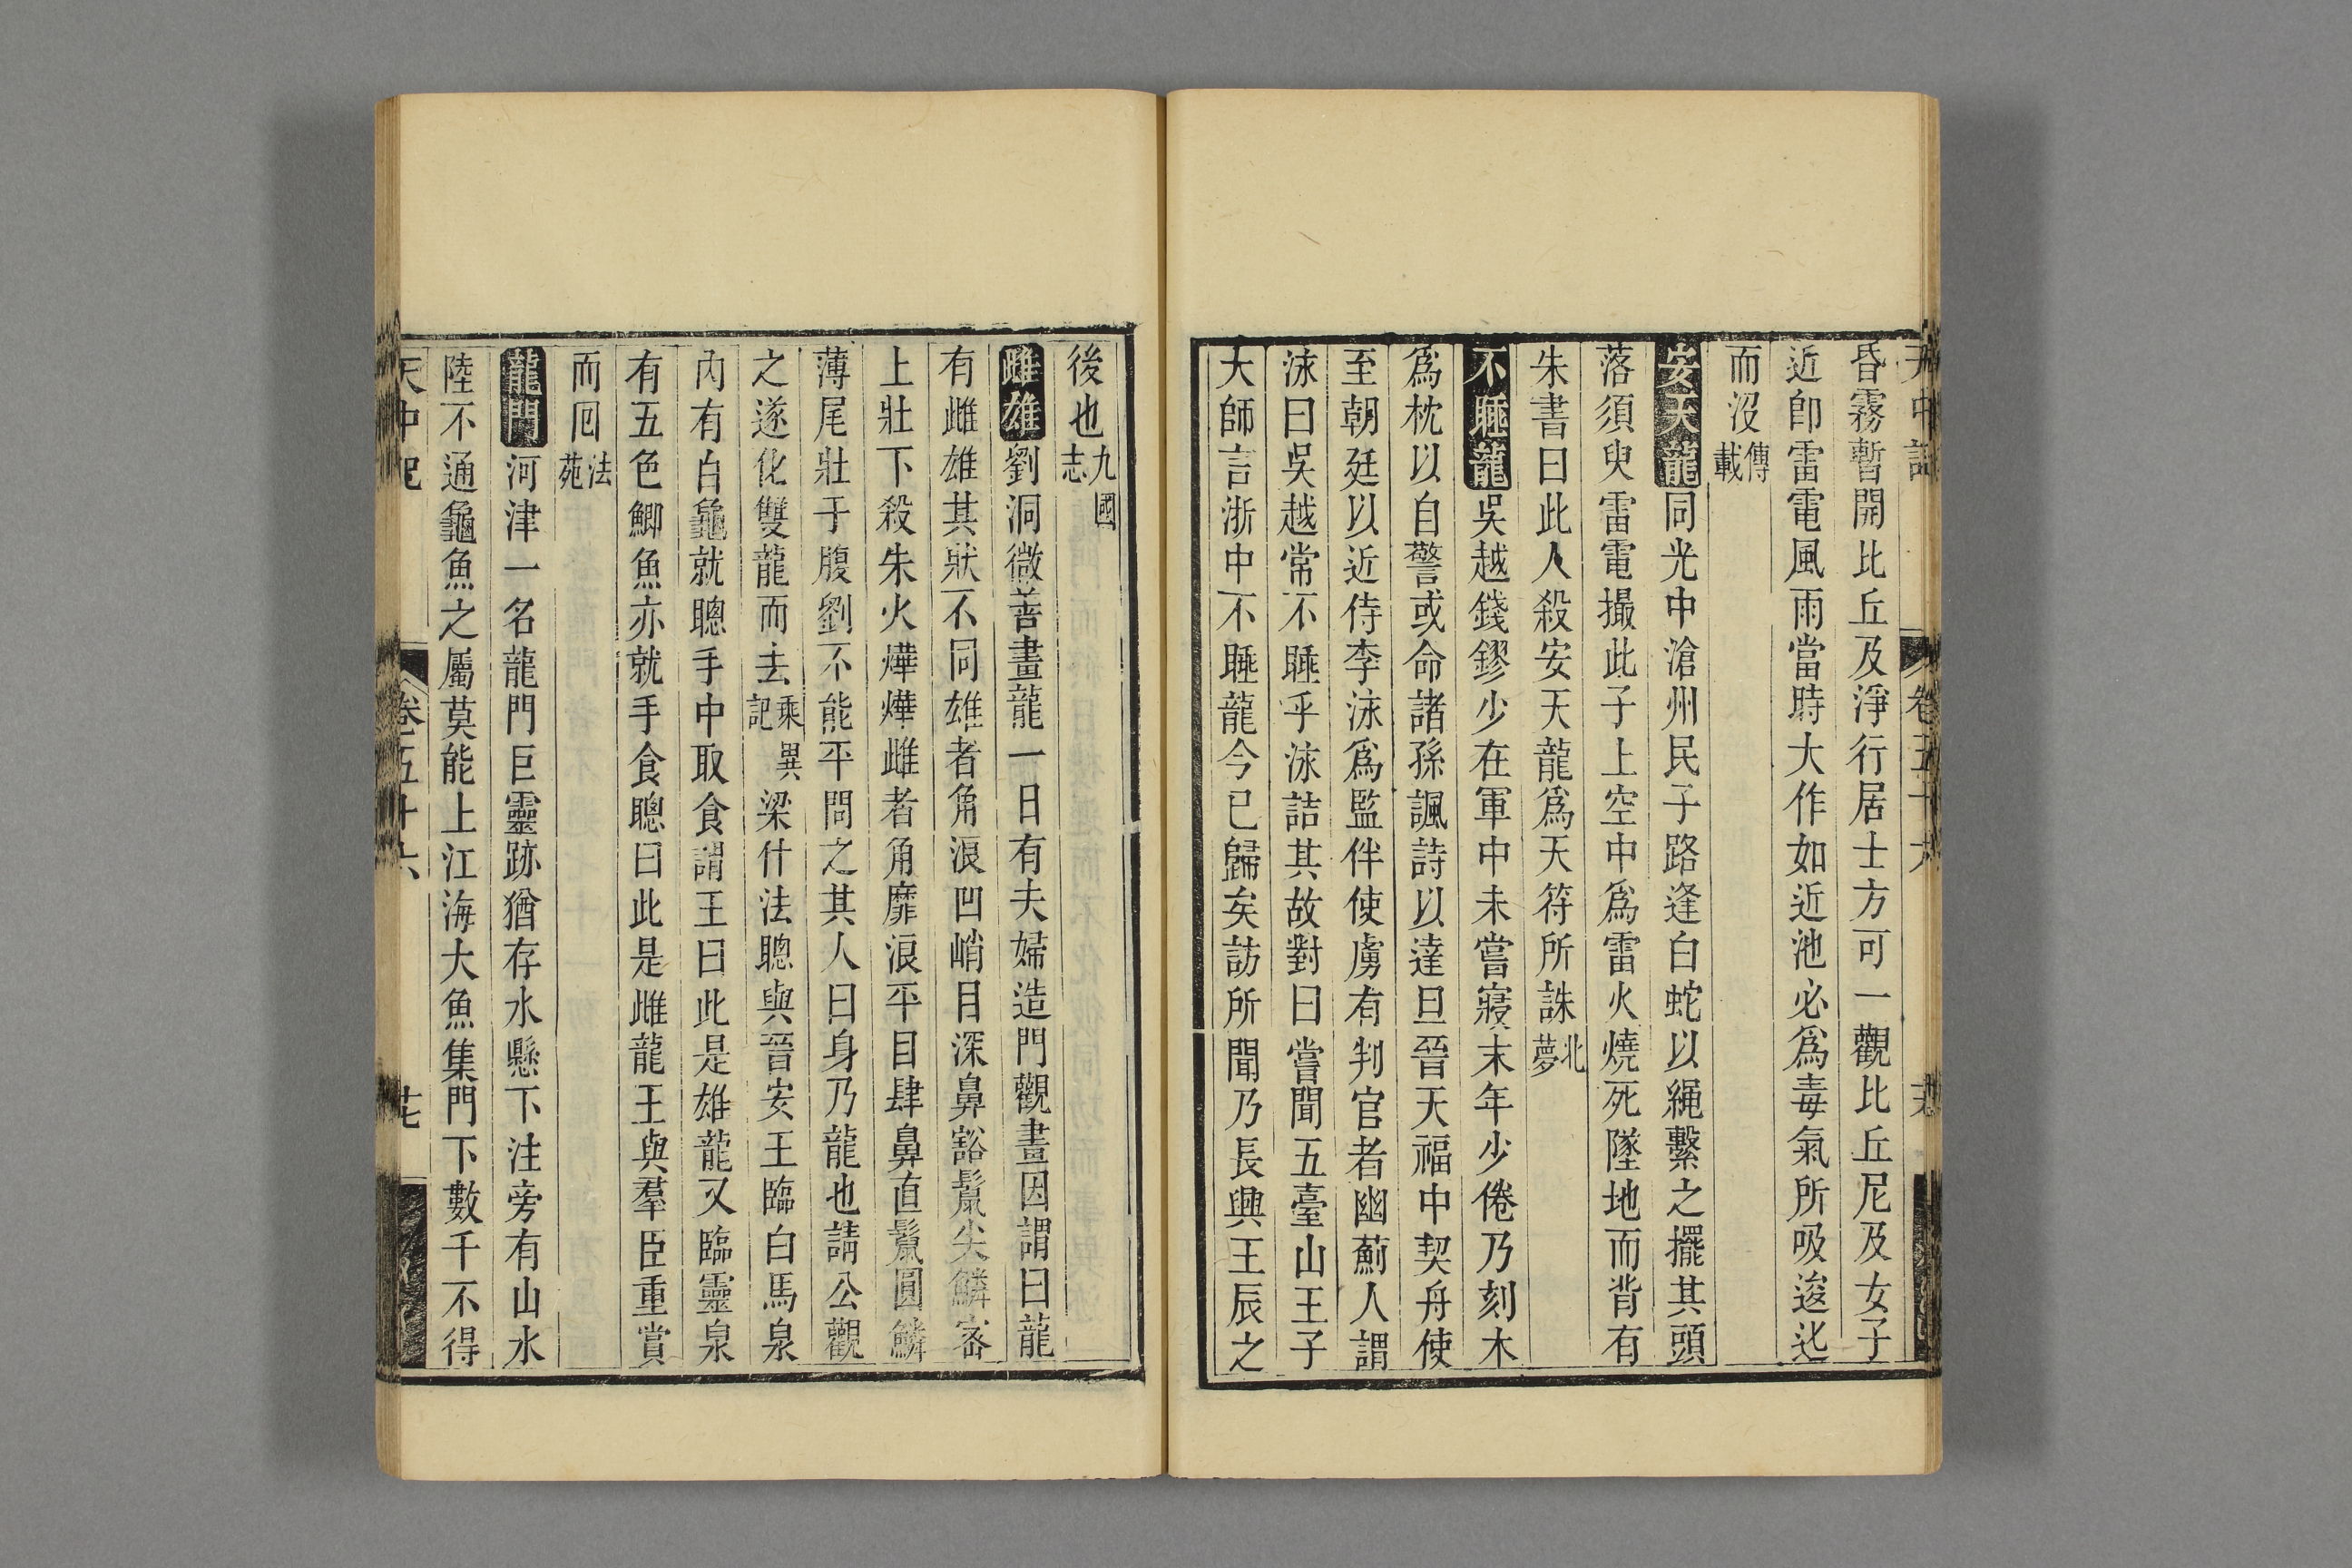 天中記 卷五十六
昏霧暫開比丘及淨行居士方可一觀比丘尼及女子
近卽雷電風雨當時大作如近池必爲毒氣所吸逡迄
而沒傳載
安天龍同光中滄州民子路逢白蛇以繩繫之擺其頭
落須臾雷電撮此子上空中爲雷火燒死墜地而背有
朱書曰此人殺安天龍爲天符所誅北夢
不睡龍吳越錢鏐少在軍中未嘗寢末年少倦乃刻木
爲枕以自警或命諸孫諷詩以達旦晉天福中契丹使
至朝廷以近侍李泳爲監伴使虜有判官者幽薊人謂
泳曰吳越常不睡乎泳詰其故對曰嘗聞五臺山王子
大師言浙中不睡龍今已歸矣訪所聞乃長興壬辰之
後也九國志
雌雄劉洞微善畫龍一日有夫婦造門觀畫因謂曰龍
有雌雄其狀不同雄者角浪凹峭目深鼻豁鬣尖鱗密
上壯下殺朱火燁燁雌者角靡浪平目肆鼻直鬣圓鱗
薄尾壯于腹劉不能平問之其人曰身乃龍也請公觀
之遂化雙龍而去乘異記 梁什法聰與晉安王臨白馬泉
內有白龜就聰手中取食謂王曰此是雄龍又臨靈泉
有五色鯽魚亦就手食聰曰此是雌龍王與羣臣重賞
而囘法苑
龍門河津一名龍門巨靈跡猶存水懸下注旁有山水
陸不通龜魚之屬莫能上江海大魚集門下數千不得
天中記 卷五十六 廿七